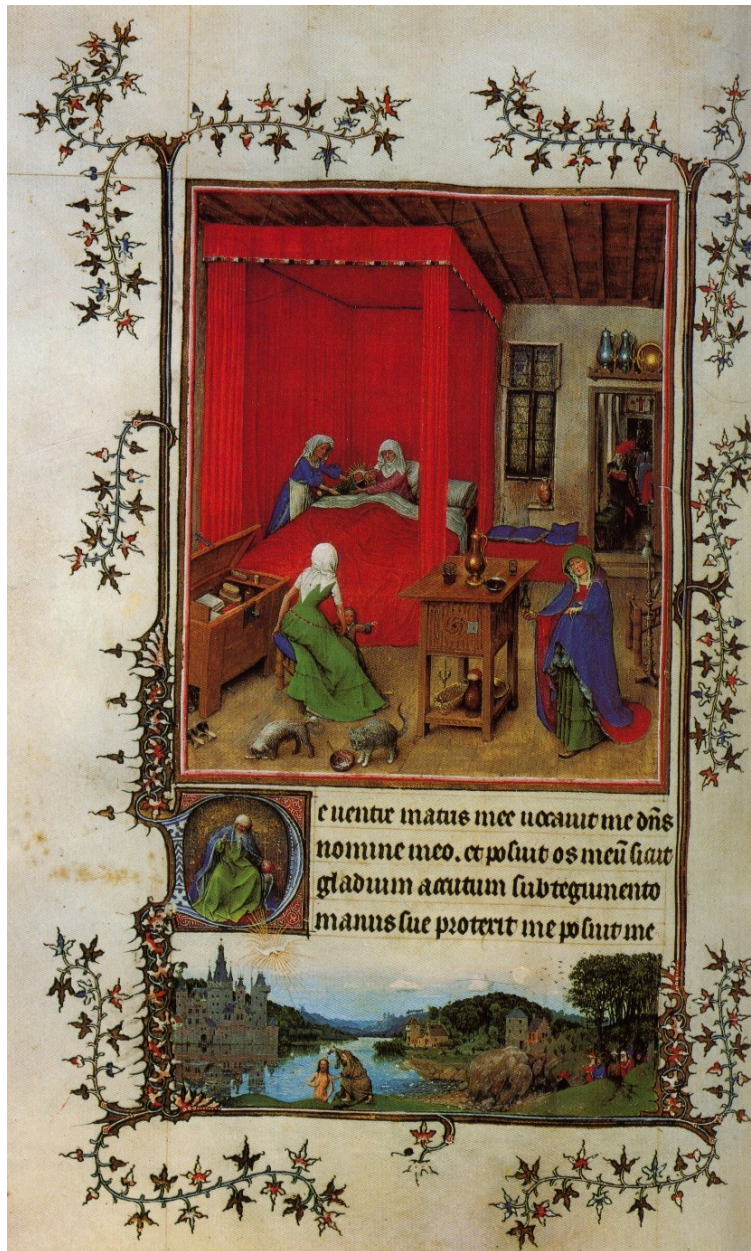 De uentre matris mee uocauit me dn̄s
nomine meo. et posuit os meū sicut
gladium accutum subtegumento
manus sue protexit me posuit me